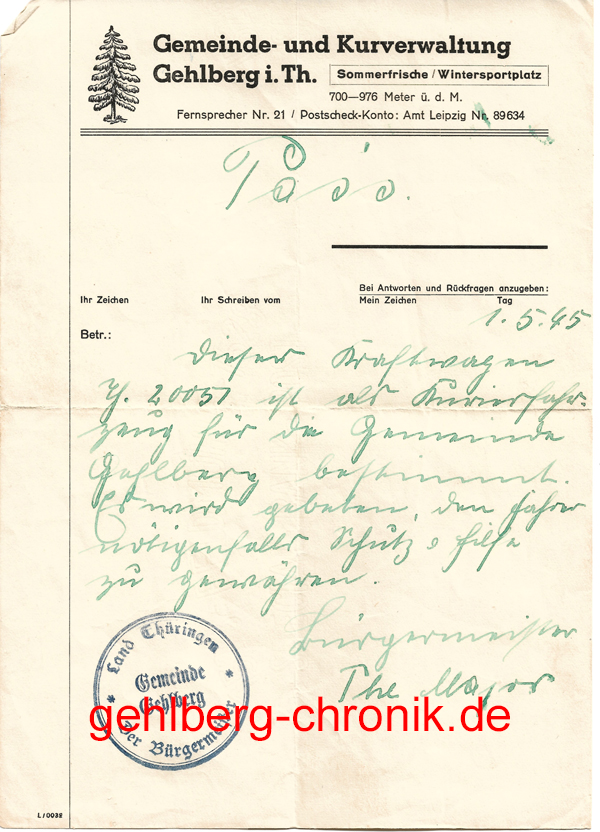 Gemeinde- und Kurverwaltung
Gehlberg i. Th.
Sommerfrische / Wintersportplatz
700—976 Meter ü. d. M.
Fernsprecher Nr. 21 / Postscheck-Konto: Amt Leipzig Nr. 89634
Pass.
Bei Antworten und Rückfragen anzugeben:
Ihr Zeichen Ihr Schreiben vom Mein Zeichen Tag
1.5.45
Betr.:
Dieser Kraftwagen
Th. 20051 ist als Kurierfahr-
zeug für die Gemeinde
Gehlberg bestimmt.
Es wird gebeten, den Fahrer
nötigenfalls Schutz & Hilfe
zu gewähren.
Bürgermeister
The Major
Land Thüringen
Gemeinde
Gehlberg
Der Bürgermeister
gehlberg-chronik.de
L/0038